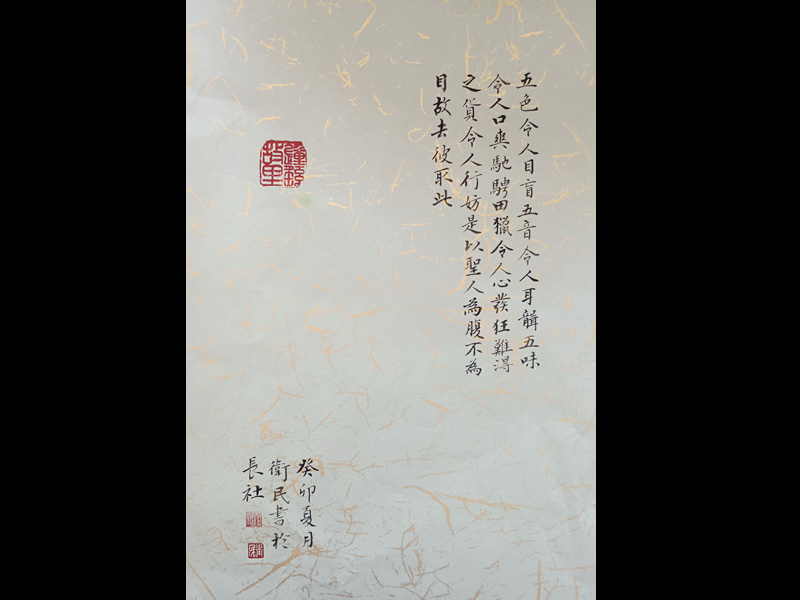 五色令人目盲五音令人耳聾五味
令人口爽馳騁田獵令人心發狂難得
之貨令人行妨是以聖人為腹不為
目故去彼取此
癸卯夏月
衛民書於
長社
故里